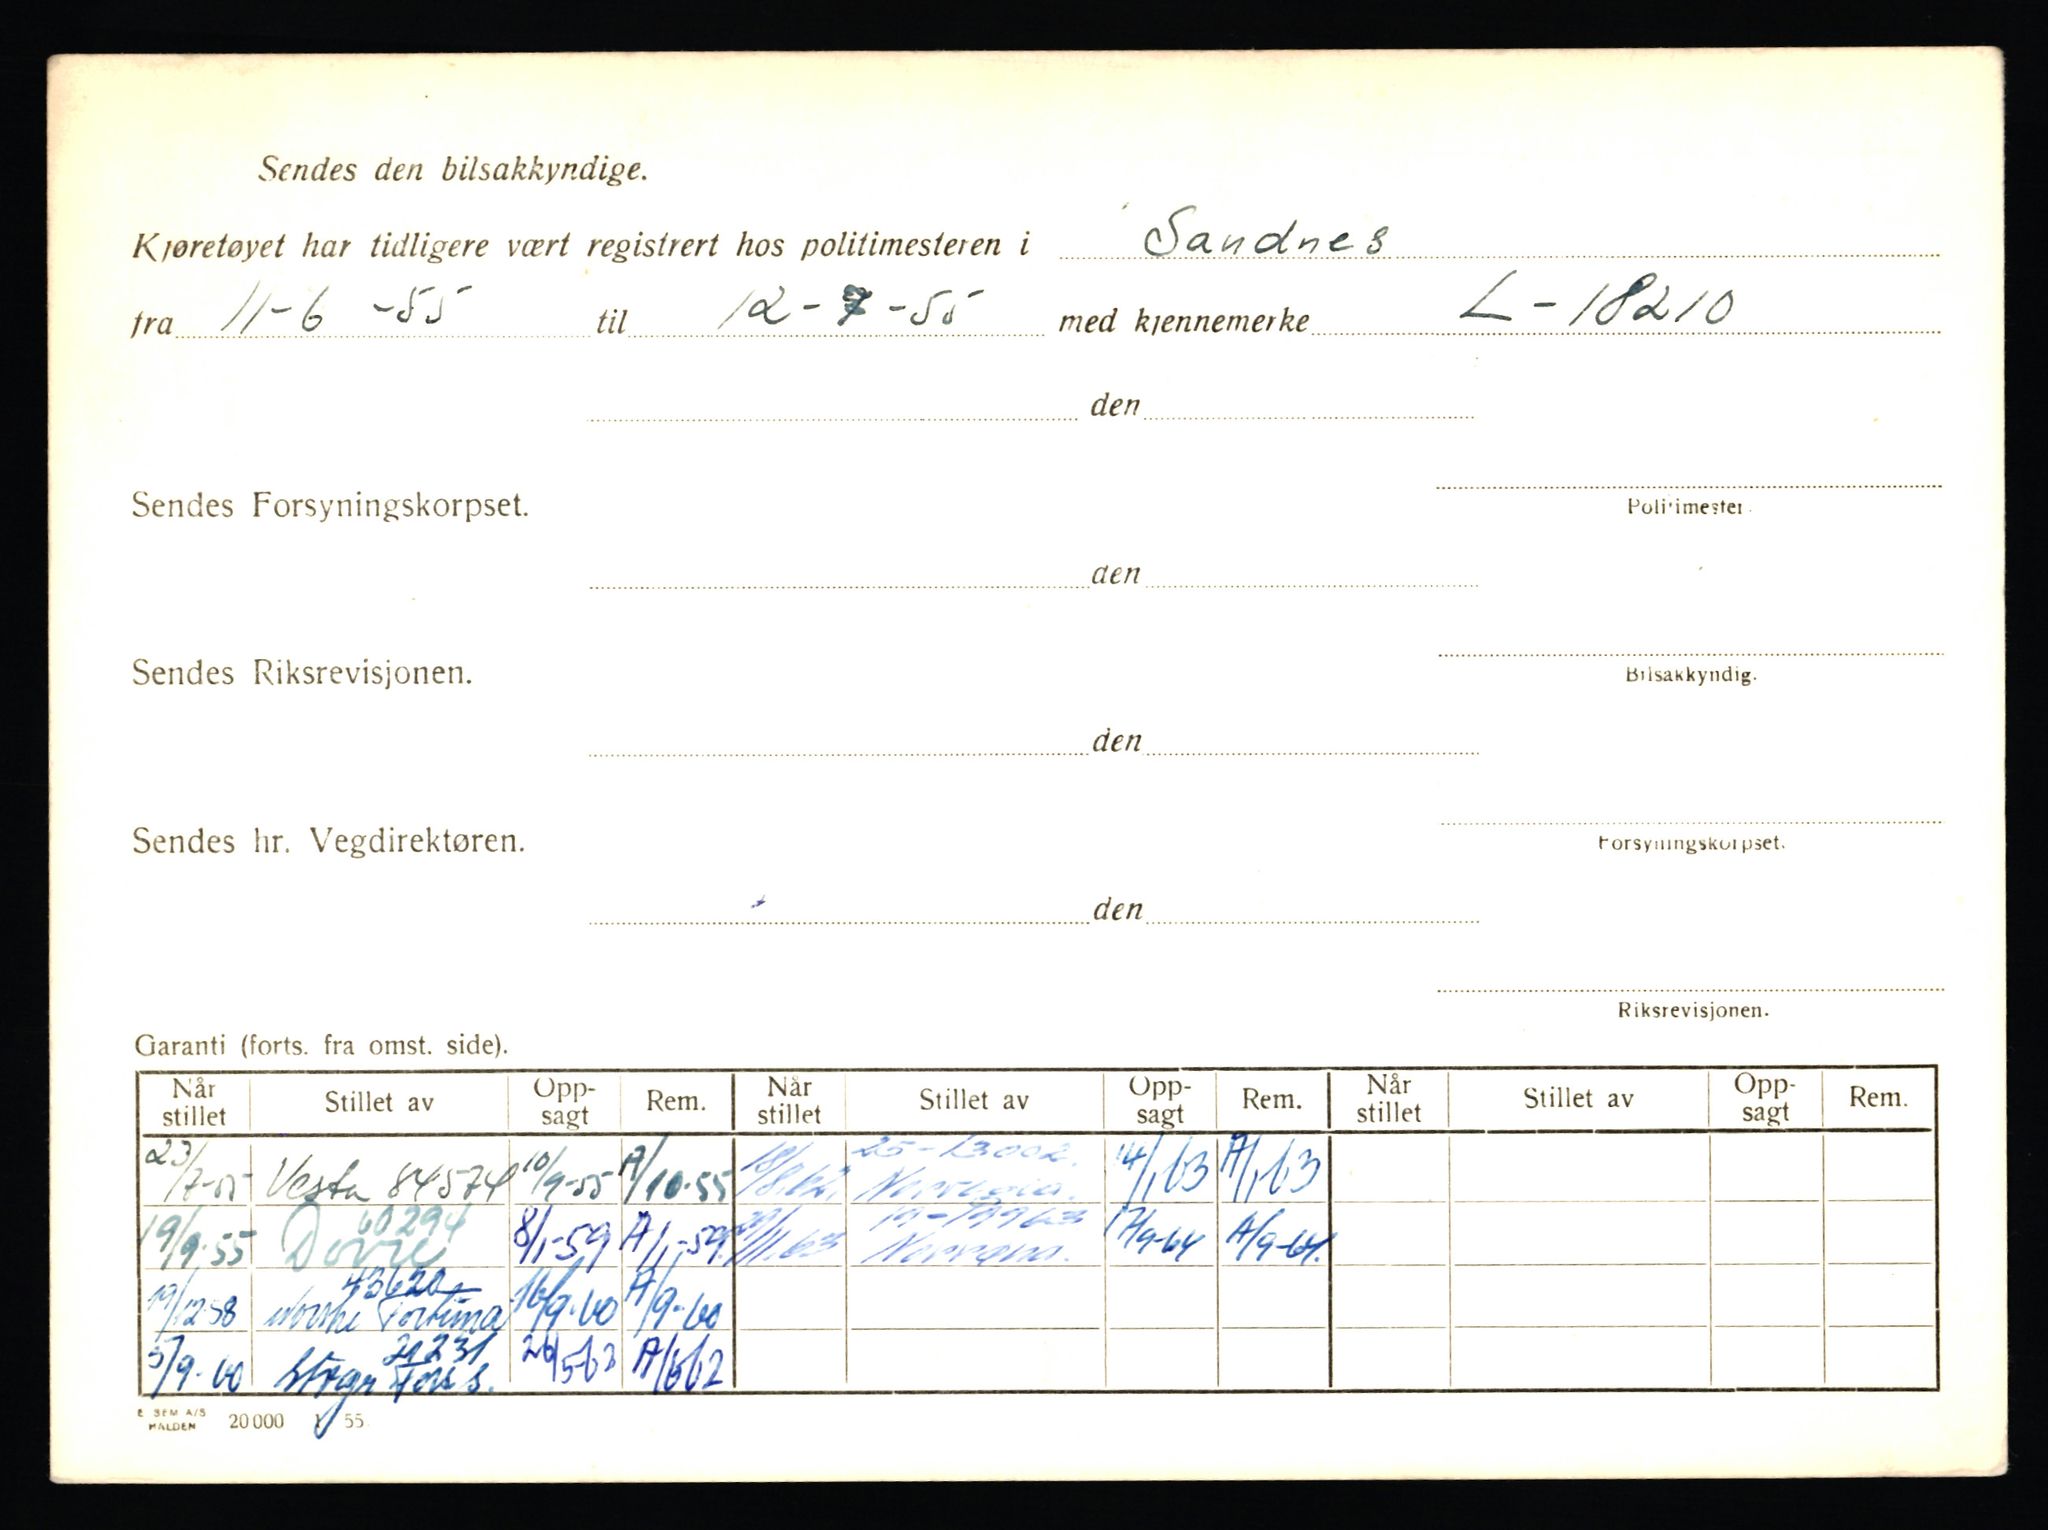 Sendes den bilsakkyndige.
Kjøretøyet har tidligere vært registrert hos politimesteren i Sandnes
fra 11-6 -55 til 12-7-55 med kjennemerke L-18210
den
Sendes Forsyningskorpset. Politimester.
den
Sendes Riksrevisjonen. Bilsakkyndig.
den
Sendes hr. Vegdirektøren. Forsyningskorpset.
den
Riksrevisjonen.
Garanti (forts. fra omst. side).
Når stillet Stillet av Opp-sagt Rem. Når stillet Stillet av Opp-sagt Rem. Når stillet Stillet av Opp-sagt Rem.
23/7-55 Vesta 84574 10/9-55 A/10-55 18/8.62. 25-13002. Norvegia. 14/1,63 A/1,63
19/9-55 Dovre 60294 8/1-59 A/1-59. 29/11.63 19-19963 17/9-64 A/9-64.
19/12-58 Norske Fortuna 43620 16/9-60 A/9-60
5/9-60 21231 26/5-62 A/662
E SEM A/S HALDEN 20000 1 55